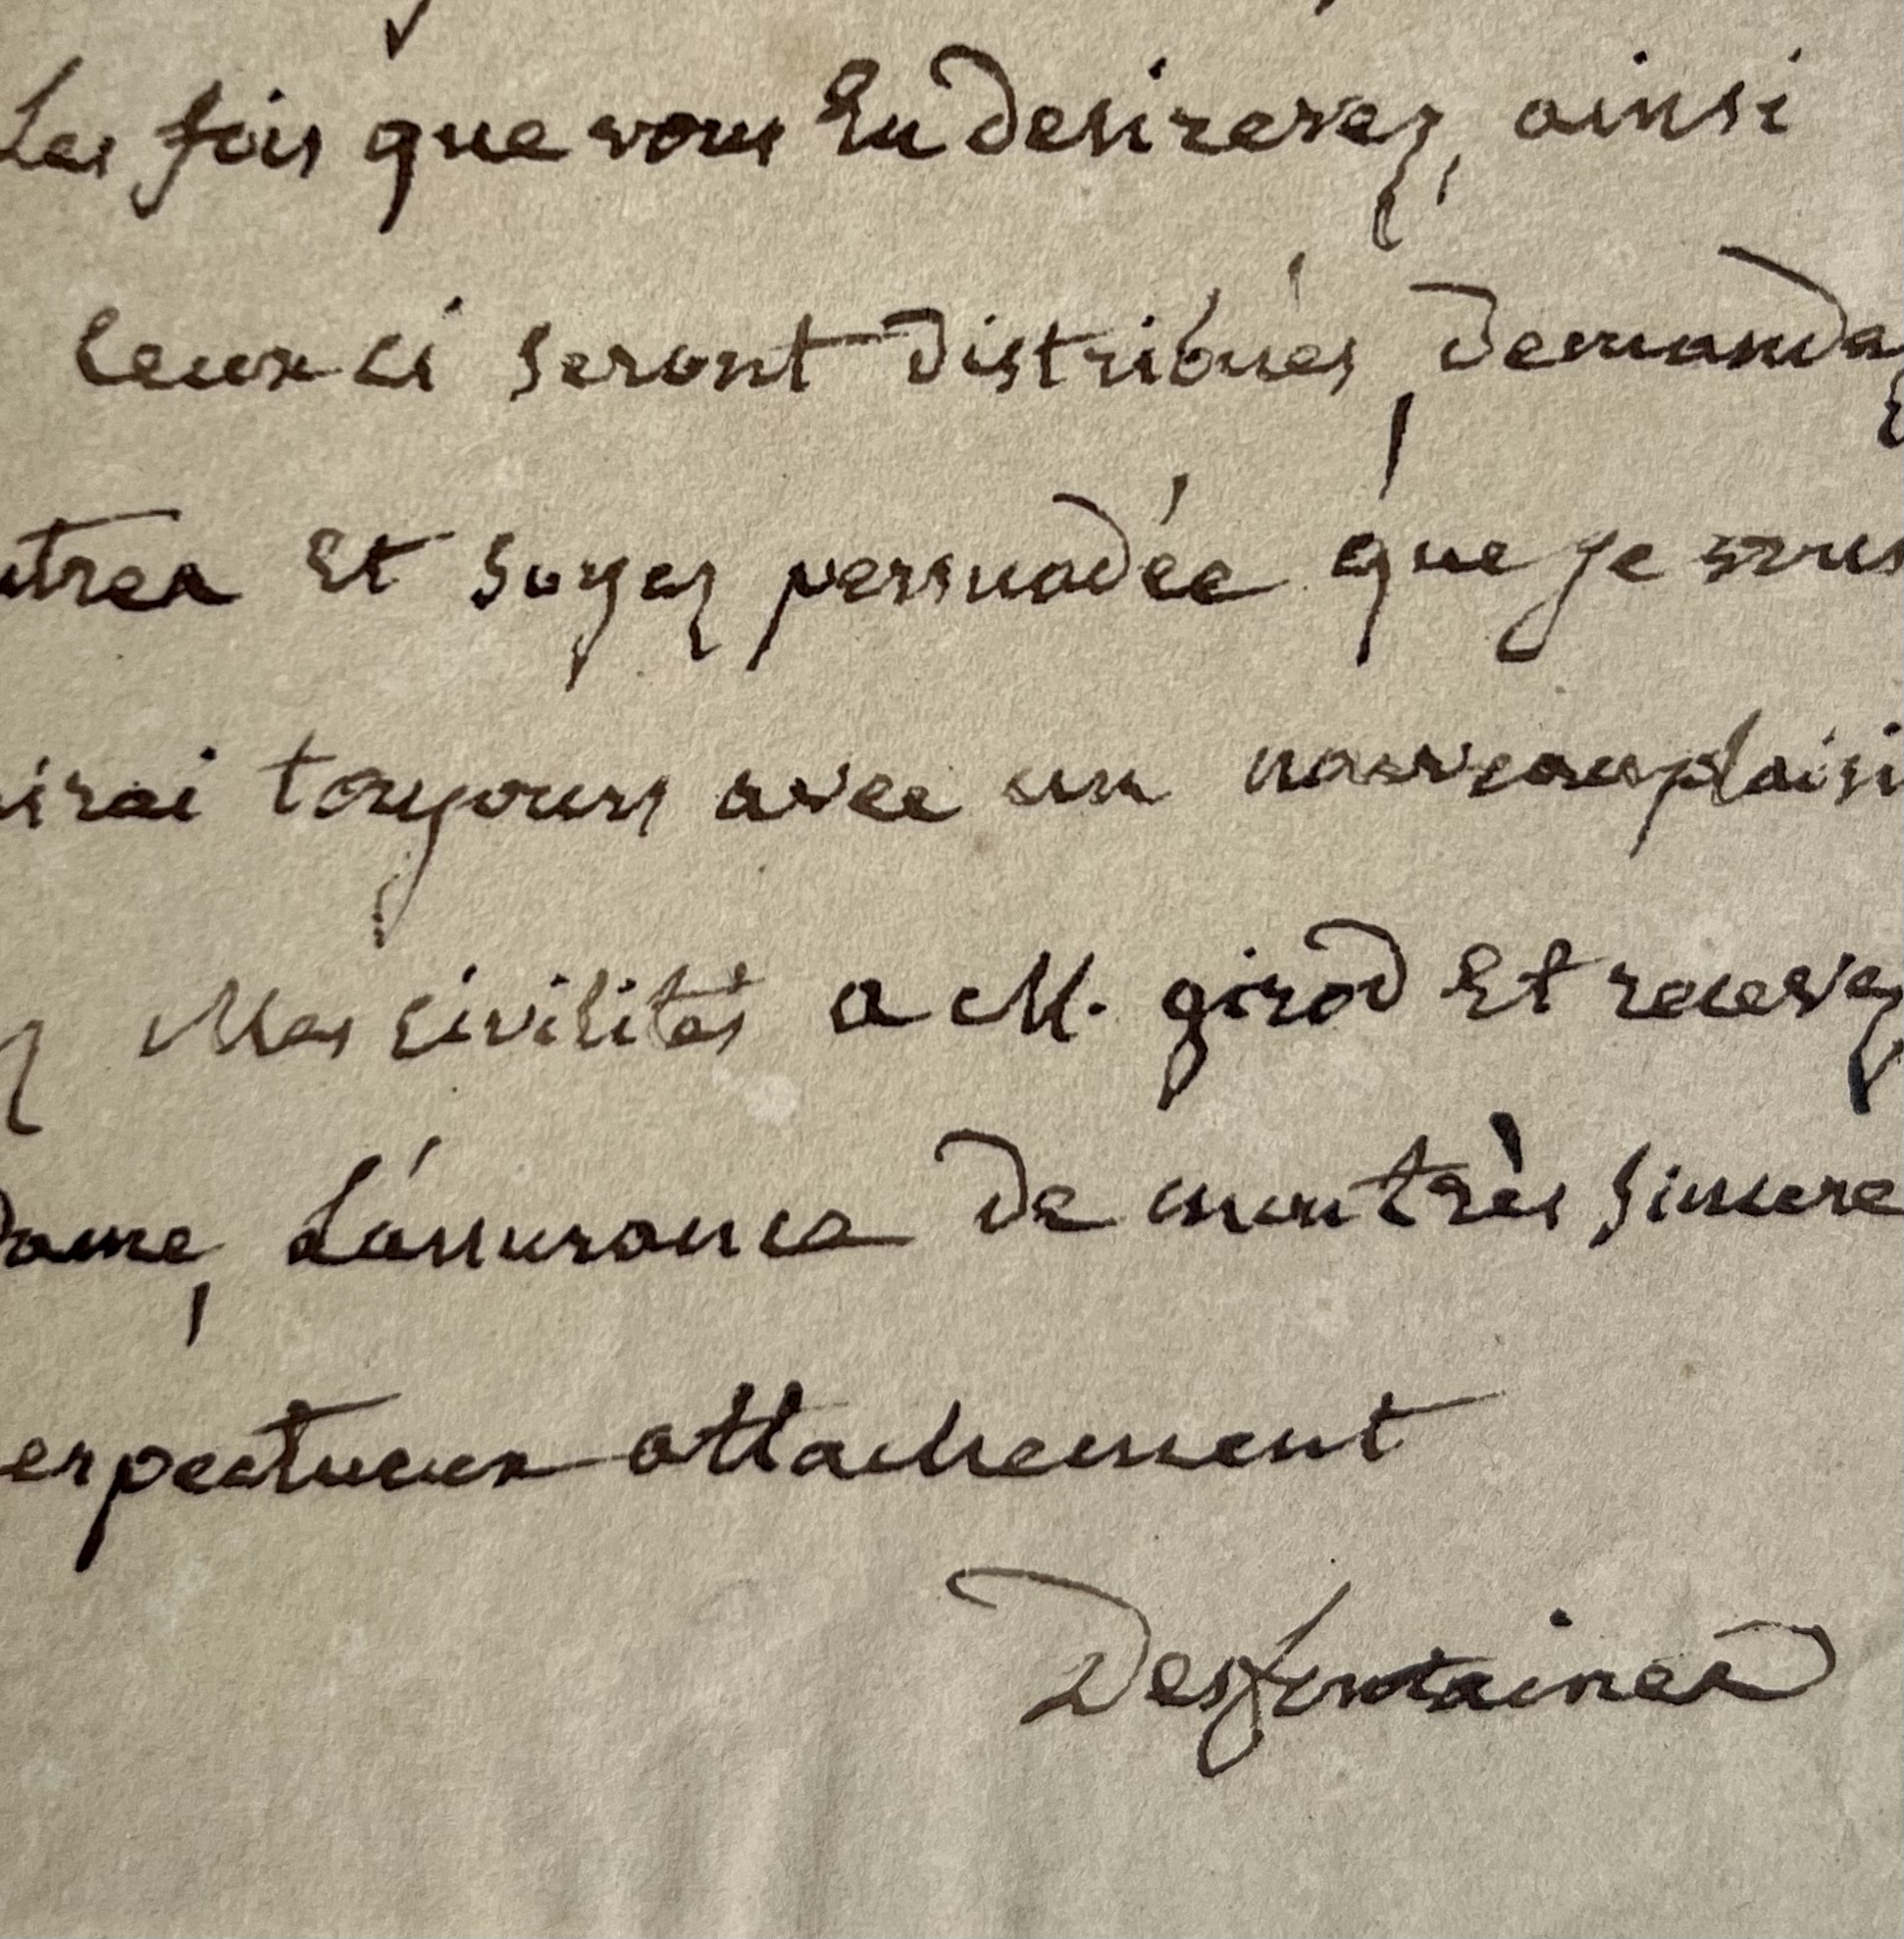 Les fois que vous En desirerez, ainsi
Ceux ci seront distribués, demandez
utres Et soyez persuadée que je vous
irai toujours avec un nouveau plaisi
z Mes civilités a M. girod Et recevez
Dame, L'assurance de mon très sincere
espectueux attachement
Desfontaines